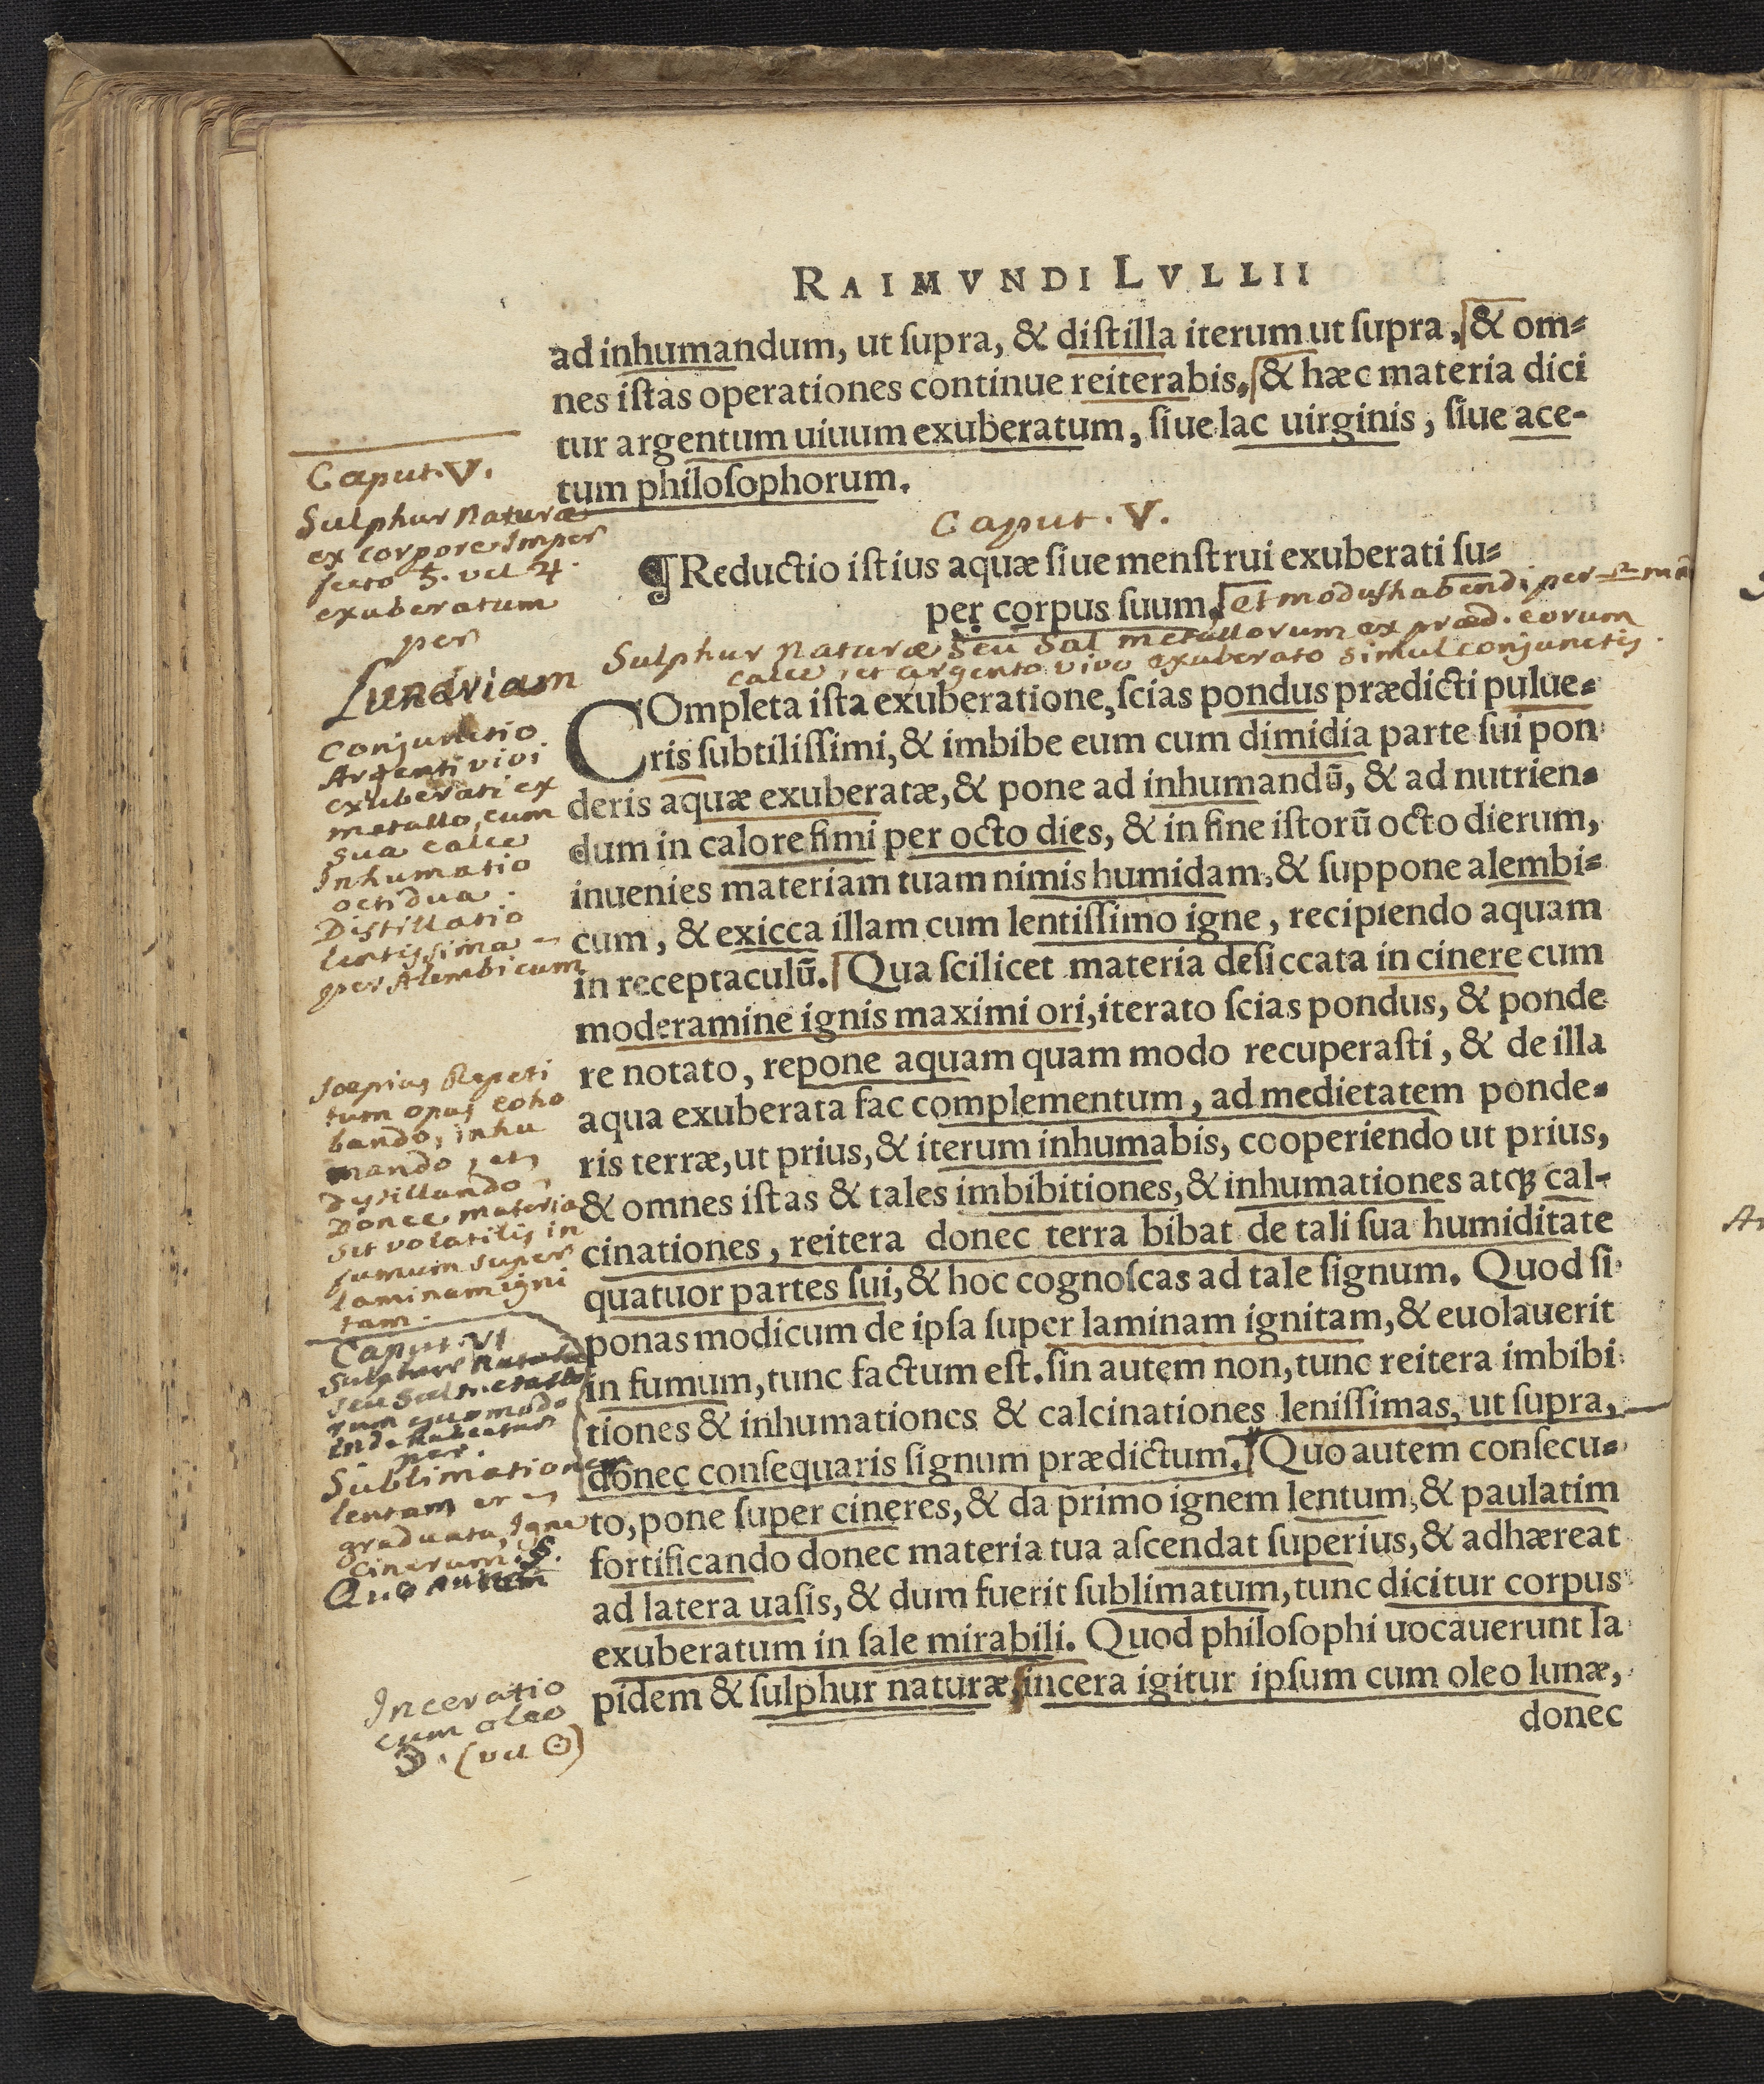 RAIMVNDI LVLLII
ad inhumandum, ut ſupra, & diſtilla iterum ut ſupra, & om⸗
nes iſtas operationes continue reiterabis, & hæc materia dici
tur argentum uiuum exuberatum, ſiue lac uirginis, ſiue ace-
tum philoſophorum.
Caput. V.
¶ Reductio iſtius aquæ ſiue menſtrui exuberati ſu⸗
per corpus suum, et modus habendi per
Sulphur Naturæ Seu Sal metallorum ex præd. eorum
calce, et argento vivo exuberato simul conjunctis.
COmpleta iſta exuberatione, ſcias pondus prædicti pulue⸗
ris ſubtiliſſimi, & imbibe eum cum dimidia parte ſui pon
deris aquæ exuberatæ, & pone ad inhumandū, & ad nutrien⸗
dum in calore fimi per octo dies, & in fine iſtorū octo dierum,
inuenies materiam tuam nimis humidam, & ſuppone alembi⸗
cum, & exicca illam cum lentiſſimo igne, recipiendo aquam
in receptaculū. Qua ſcilicet materia deſiccata in cinere cum
moderamine ignis maximi ori, iterato ſcias pondus, & ponde
re notato, repone aquam quam modo recuperaſti, & de illa
aqua exuberata fac complementum, ad medietatem ponde⸗
ris terræ, ut prius, & iterum inhumabis, cooperiendo ut prius,
& omnes iſtas & tales imbibitiones, & inhumationes atq; cal-
cinationes, reitera donec terra bibat de tali ſua humiditate
quatuor partes ſui, & hoc cognoſcas ad tale ſignum. Quod ſi
ponas modicum de ipſa ſuper laminam ignitam, & euolauerit
in fumum, tunc factum eſt. ſin autem non, tunc reitera imbibi
tiones & inhumationes & calcinationes leniſſimas, ut ſupra,
donec conſequaris ſignum prædictum. Quo autem conſecu⸗
to, pone ſuper cineres, & da primo ignem lentum, & paulatim
fortificando donec materia tua aſcendat ſuperius, & adhæreat
ad latera uaſis, & dum fuerit ſublimatum, tunc dicitur corpus
exuberatum in ſale mirabili. Quod philoſophi uocauerunt la
pidem & ſulphur naturæ, incera igitur ipſum cum oleo lunæ,
donec
Caput. V.
Sulphur Naturæ
ex corpore Imper
fecto ♄. vel ♃.
exuberatum
per
Lunariam
Conjunctio
Argenti vivi
exuberati ex
metallo, cum
sua calce
Inhumatio
octidua.
Distillatio
lentissima
per Alembicum
Sæpius Repeti
tum opus coho
bando, inhu
mando, et
dystillando,
Donec materia
sit volatilis in
fumum super
laminam igni
tam.
Caput. VI
Sulphur Naturæ
seu Sal metallo
rum quomodo
inde habeatur
per.
Sublimationem
lentam et
graduata, Igne
Cinerum. §.
Quo autem
Inceratio
cum oleo
☽. (vel ☉)